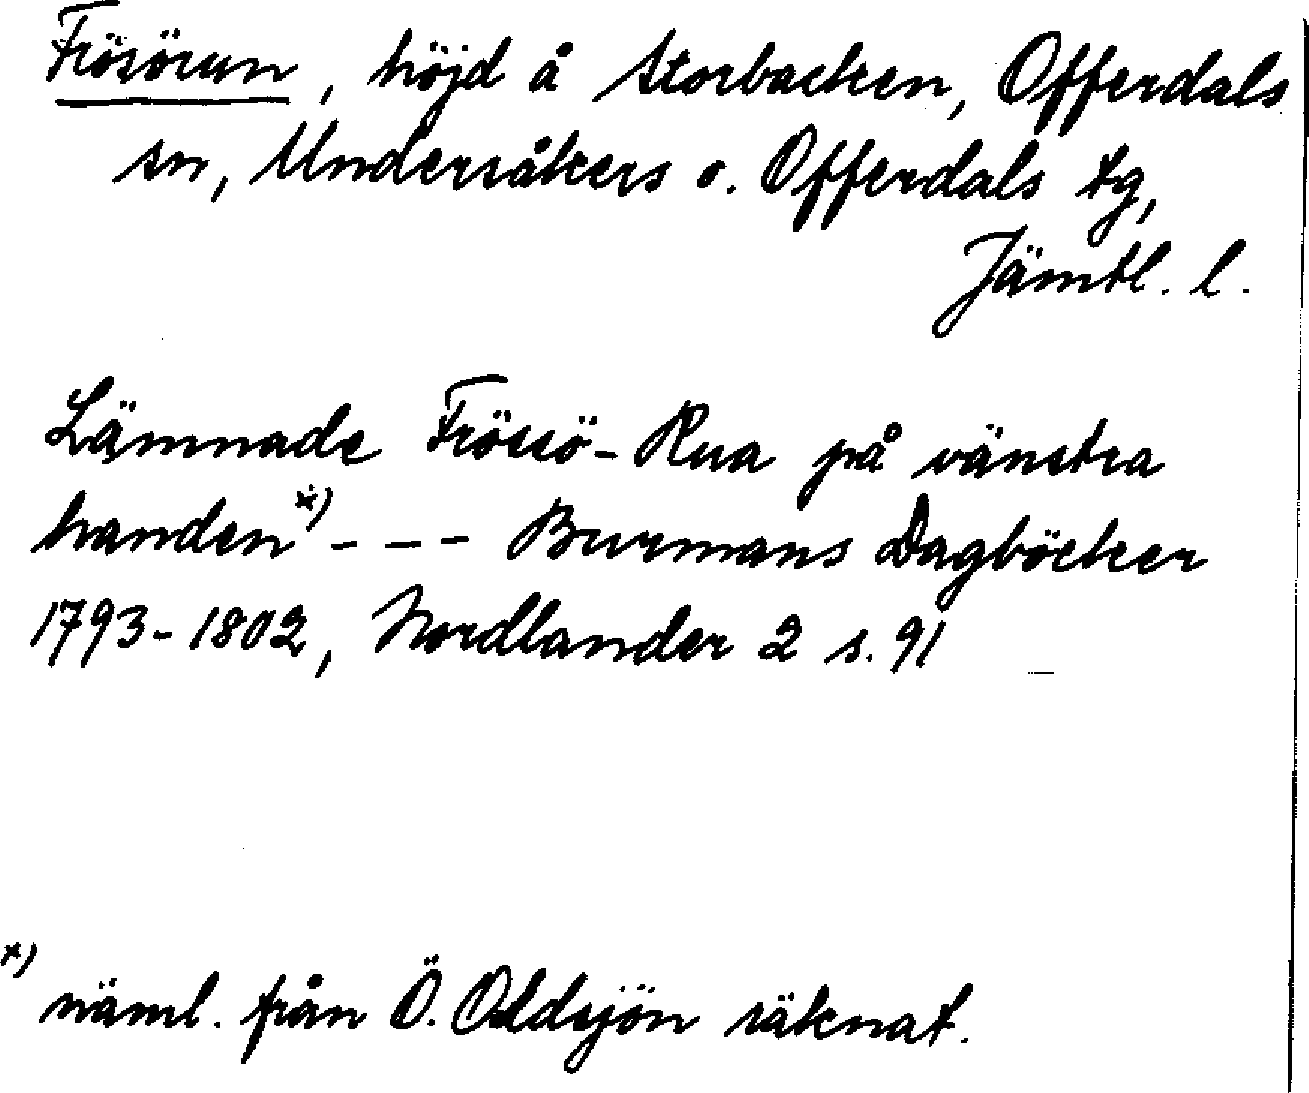 Frösörun, höjd å Storbacken, Offerdals
sn, Undersåkers o. Offerdals tg,
Jämtl. l.
Lämnade Frössö-Rua på vänstra
handen*) - - - Burmans Dagböcker
1793-1802, Nordlander 2 s. 91
*) näml. från Ö. Oldsjön räknat.